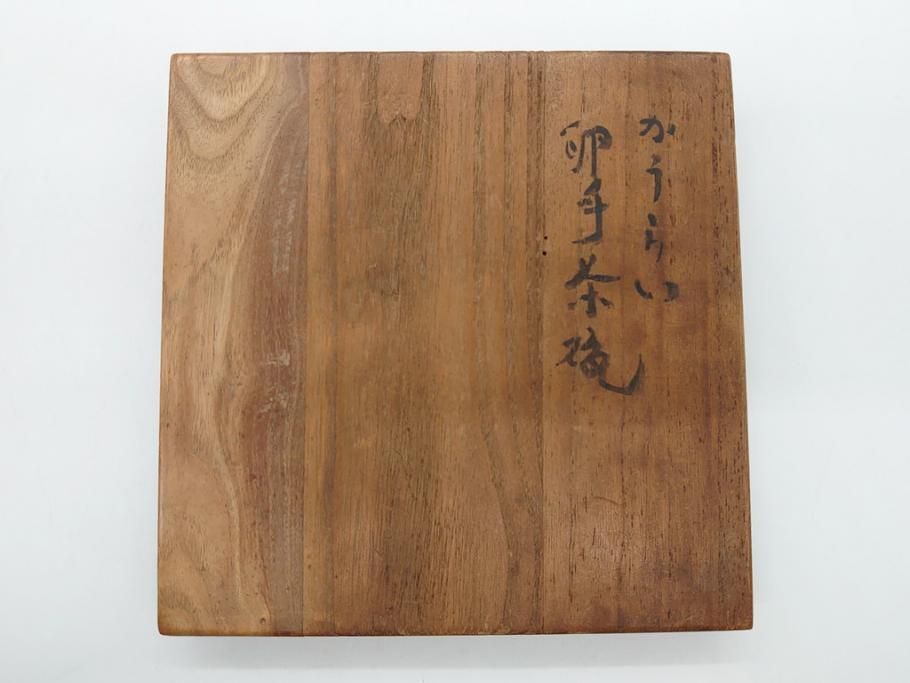 かうらい
卵手茶碗